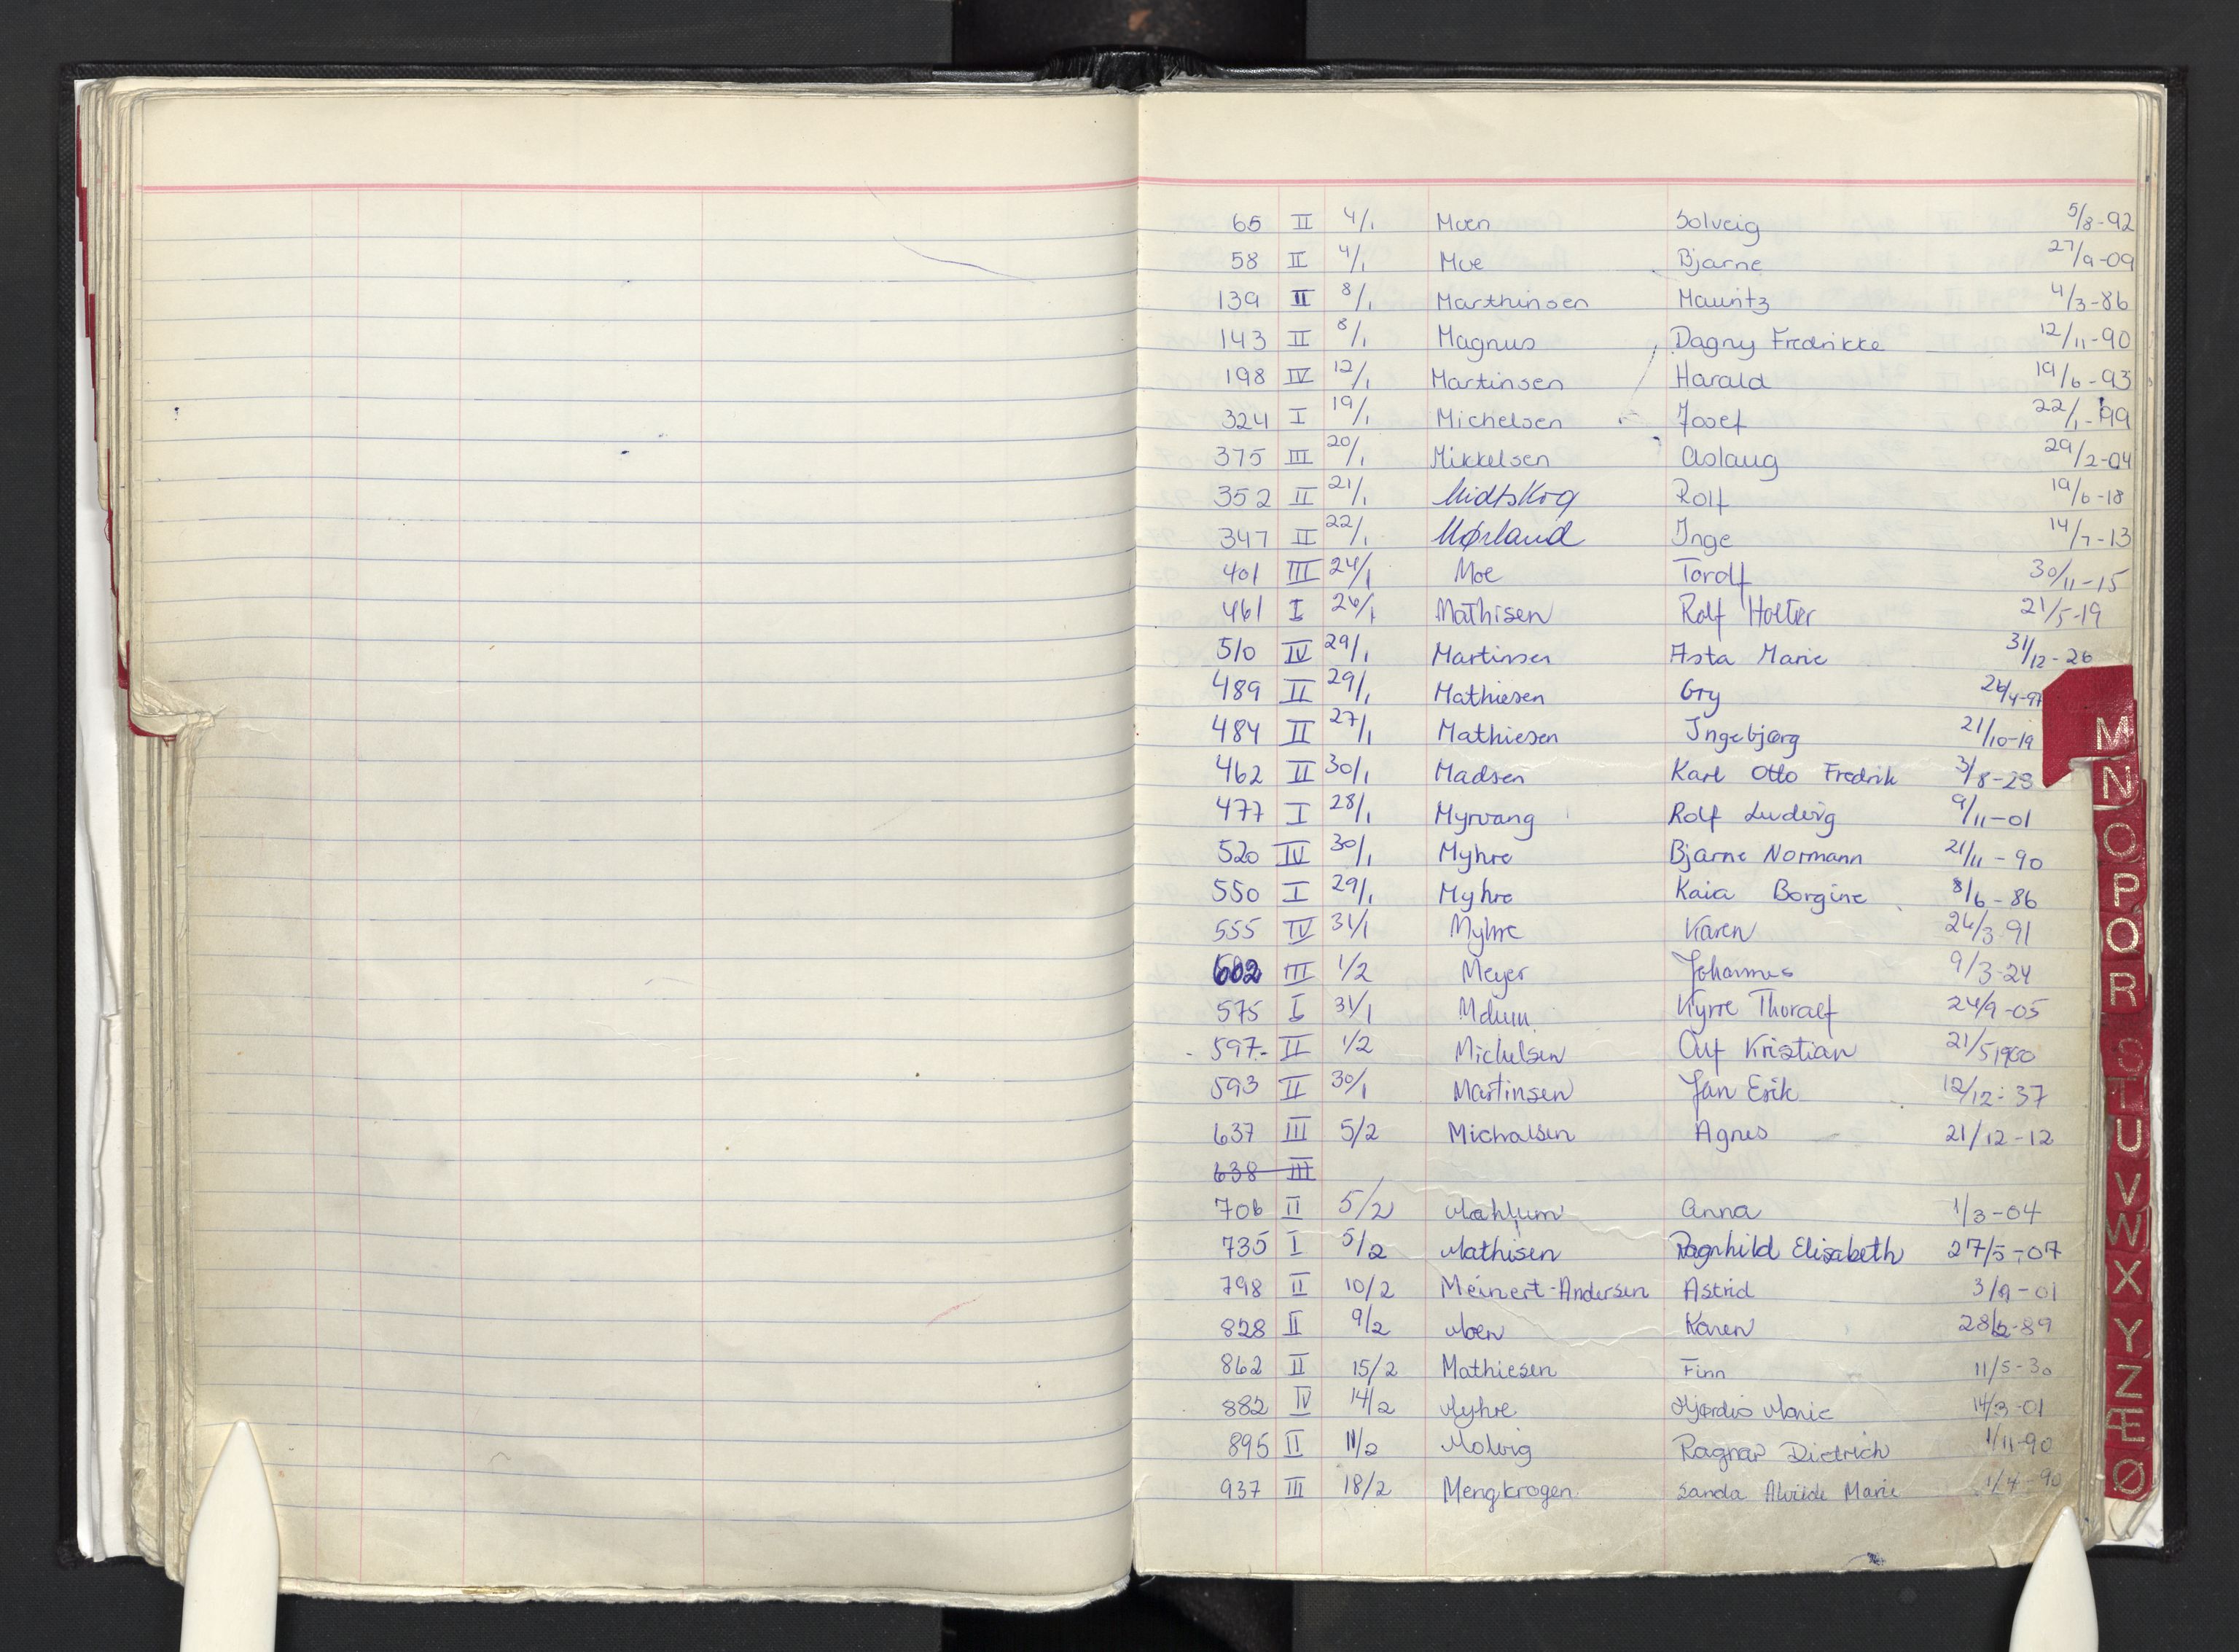 65 II 4/1 Moen Solveig 5/8-92
58 II 4/1 Moe Bjarne 27/9-09
139 II 8/1 Marthinsen Mauritz 4/3-86
143 II 8/1 Magnus Dagny Fredrikke 12/11-90
198 IV 12/1 Martinsen Harald 19/6-93
324 I 19/1 Michelsen Josef 22/1-99
375 III 20/1 Mikkelsen Aslaug 29/2-04
352 II 21/1 Midtskog Rolf 19/6-18
347 II 22/1 Mørland Inge 14/7-13
401 III 24/1 Moe Torolf 30/11-15
461 I 26/1 Mathisen Rolf Holter 21/5-19
510 IV 29/1 Martinsen Asta Marie 31/12-26
489 II 29/1 Mathiesen Gry
484 II 27/1 Mathiesen Ingebjørg 21/10-19
462 II 30/1 Madsen Karl Otto Fredrik 3/8-23
477 I 28/1 Myrvang Rolf Ludvig 9/11-01
520 IV 30/1 Myhre Bjarne Normann 21/11-90
550 I 29/1 Myhre Kaia Borgine 8/6-86
555 IV 31/1 Myhre Karen 26/3-91
602 III 1/2 Meyer Johannes 9/3-24
575 I 31/1 Kyrre Thoralf 24/9-05
597 II 1/2 Michelsen Kristian
593 II 30/1 Martinsen Jan Erik 12/12-37
637 III 5/2 Michalsen Agnes 21/12-12
638 III
706 II 5/2 Mæhlum Anna 1/3-04
735 I 5/2 Mathisen Ragnhild Elisabeth 27/5-07
798 II 10/2 Meinert-Andersen Astrid 3/9-01
828 II 9/2 Moen Karen 28/2-89
862 II 15/2 Mathiesen Finn 11/5-30
882 IV 14/2 Myhre Hjørdis Marie 14/3-01
895 II 11/2 Molvig Ragnar Dietrich 1/11-90
937 III 18/2 Mengkrogen Sanda Alvilde Marie 1/4-90
M
N
O
P
Q
R
S
T
U
V
W
X
Y
Z
Æ
Ø